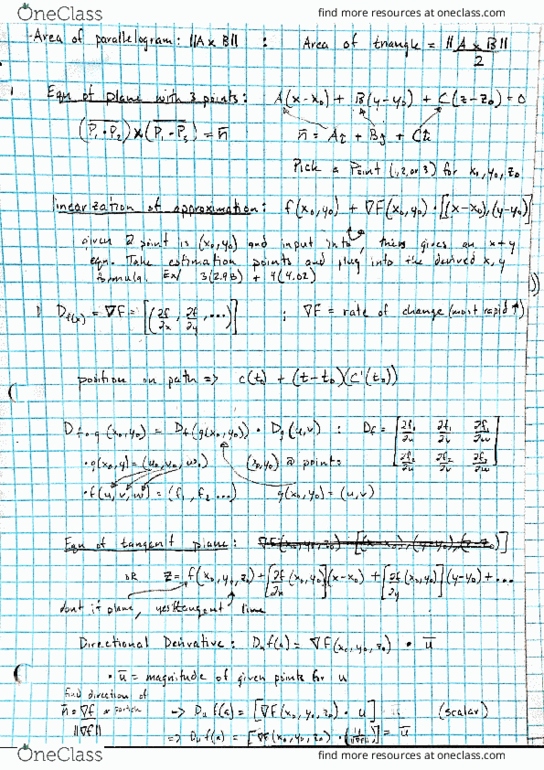 OneClass
find more resources at oneclass.com
-Area of parallelogram: ||A x B|| : Area of triangle = ||A x B|| / 2
Eqn of plane with 3 points: A(x-x₀) + B(y-y₀) + C(z-z₀) = 0
(P₁·P₂) x (P₁·P₃) = n̄ n̄ = Aî + Bĵ + Ck̂
Pick a Point (1,2, or 3) for x₀, y₀, z₀
linearization of approximation: f(x₀,y₀) + ∇F(x₀,y₀) · [(x-x₀), (y-y₀)]
given point is (x₀,y₀) and input into this gives an x+y
eqn. Take estimation points and plug into the derived x, y
formula. EX 3(2.98) + 4(4.02)
D_f(x) = ∇F = [(∂f/∂x, ∂f/∂y, ...)] ; ∇F = rate of change (most rapid ↑)
position on path => c(t₀) + (t-t₀)(c'(t₀))
D f∘g (x₀,y₀) = D_f(g(x₀,y₀)) · D_g(u,v) : Df = [∂f₁/∂u ∂f₁/∂v ∂f₁/∂w
∂f₂/∂u ∂f₂/∂v ∂f₂/∂w]
·g(x₀,y) = (u₀, v₀, w₀) (x₀,y₀) @ points
·f(u,v,w) = (f₁, f₂ ...) g(x₀,y₀) = (u,v)
Eqn of tangent plane:
OR z = f(x₀,y₀,z₀) + [∂f/∂x (x₀,y₀)](x-x₀) + [∂f/∂y (x₀,y₀)](y-y₀) + ...
dont if plane, yes tangent line
Directional Derivative: Duf(a) = ∇F(x₀,y₀,z₀) · ū
· ū = magnitude of given points for u
find direction of
n̄ = ∇f / ||∇f|| -> Du f(a) = [∇F(x₀,y₀,z₀) · u] (scalar)
=> Du f(a) = [∇F(x₀,y₀,z₀) · = ū
OneClass
find more resources at oneclass.com